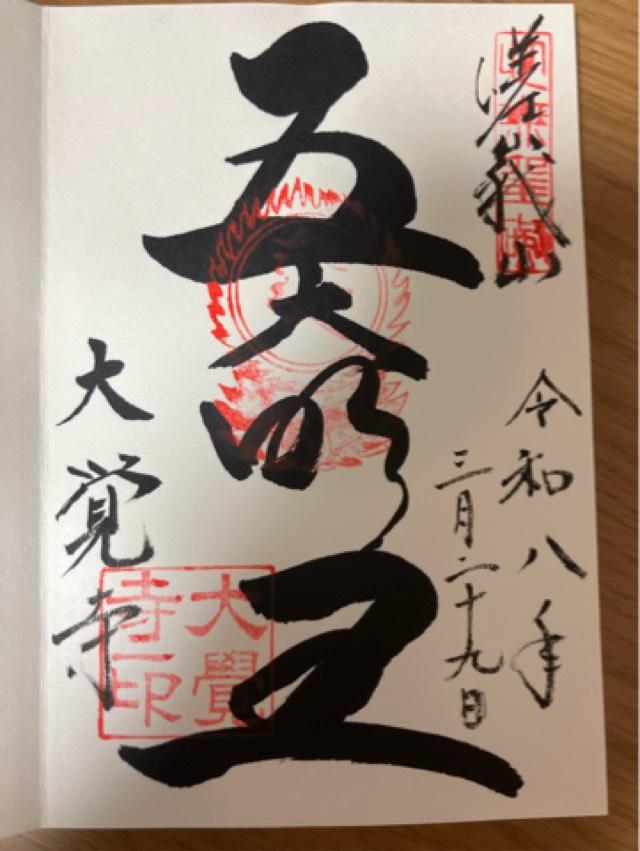 嵯峨山
令和八年
三月二十九日
五大明王
大覚寺
大覺
寺印